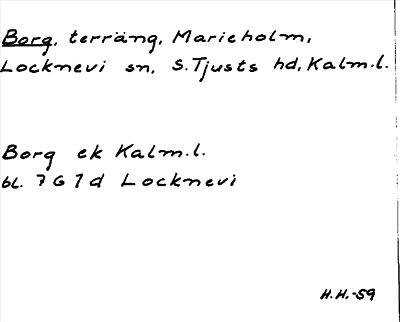 Borg, terräng, Marieholm,
Locknevi sn, S.Tjusts hd, Kalm.l.
Borg ek Kalm.l.
bl. 7G7d Locknevi
H.H.-59